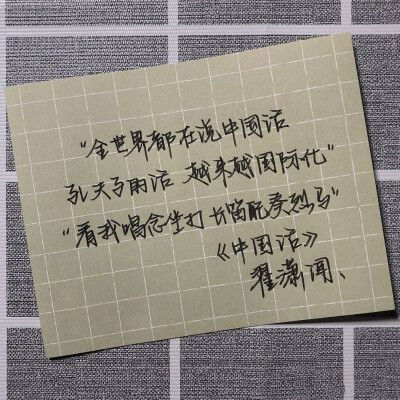 “全世界都在说中国话
孔夫子的话 越来越国际化”
“看我唱念坐打 长笛配烈马”
《中国话》
翟潇闻、